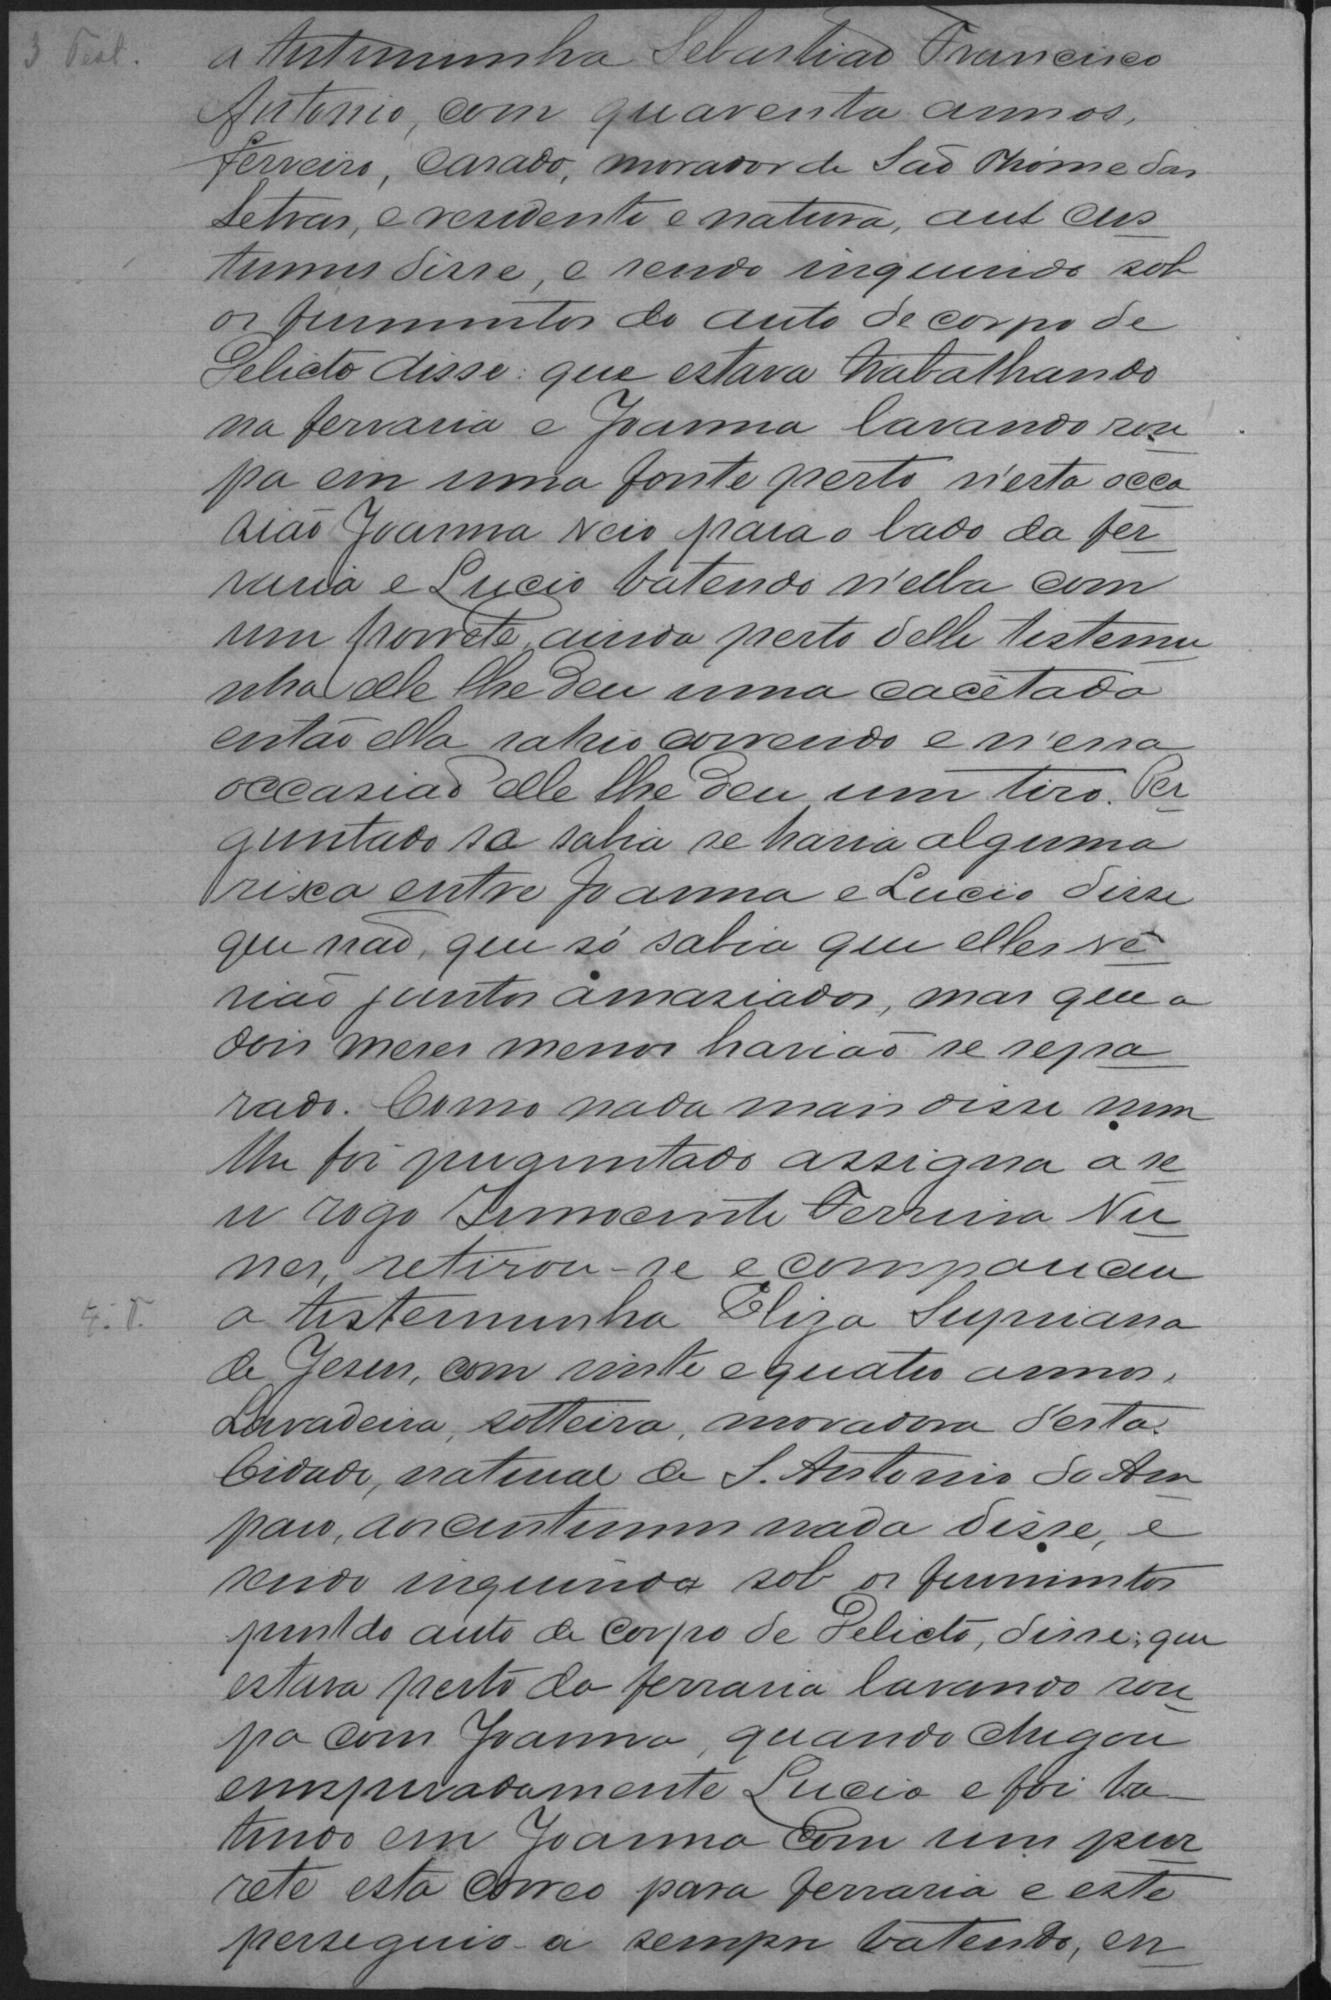 3 Test.
a testemunha Sebastião Francisco
Antonio, com quarenta annos,
ferreiro, casado, morador de São Thóme das
Letras, e residente e natura, aus cus
tumes disse, e sendo inquerido sob
os ferimentos do auto de corpo de
Delicto disse: que estava trabalhando
na ferraria e Joanna lavando rou
pa em uma fonte perto n'esta occa
sião Joanna veio para o lado da fer
raria e Lucio batendo n'ella com
um porrete, ainda perto delle testemu
nha elle lhe deu uma cacêtada
então ella sahio correndo e n'essa
occasião elle lhe deu um tiro. Per
guntado sa sabia se havia alguma
rixa entre Joanna e Lucio disse
que não, que só sabia que elles ve
vião juntos amasiados, mas que a
dois meses menos havião se sepa
rado. Como nada mais disse nem
lhe foi preguntado assigna a se
u rogo Innocente Ferreira Nu
nes, retirou-se e compareceu
4. T.
a testemunha Eliza Supriana
de Jesus, com vinte e quatro annos,
Lavadeira, solteira, moradora d'esta
Cidade, natural de S. Antonio do Am
paro, aos custumes nada disse, e
sendo inquirida sob os ferimentos
do auto de corpo de Delicto, disse: que
estava perto da ferraria lavando rou
pa com Joanna, quando chegou
emsperadamente Lucio e foi ba
tendo em Joanna com um por
rete esta correo para ferraria e este
perseguio-a sempre batendo, en